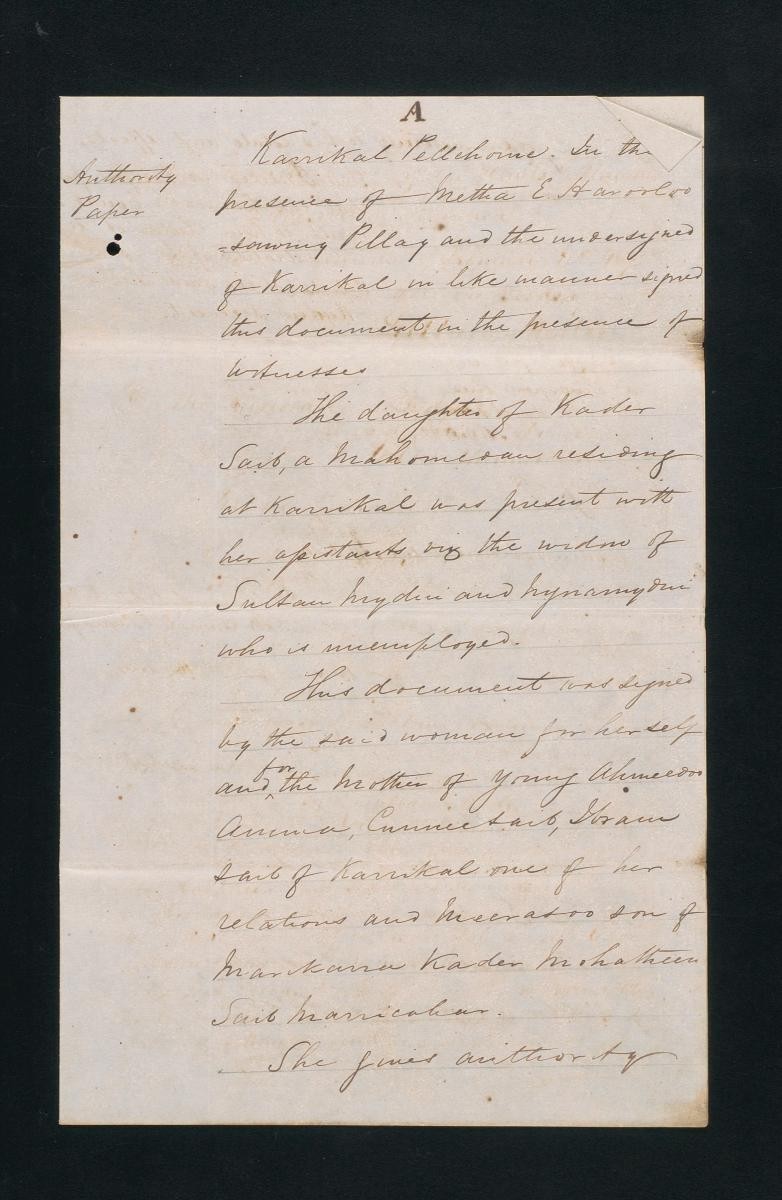 A
Authority
Paper
Karrikal Pellehome. In the
presence of Metha E Havoorloo
=sawmy Pillay and the undersigned
of Karrikal in like manner signed
this document in the presence of
witnesses
The daughter of Kader
Saib, a Mahomedan residing
at Karrikal was present with
her assistants viz the widow of
Sultan Mydin and Nynamydin
who is unemployed.
This document was signed
by the said woman for herself
and for the Mother of Young Ahmeedoo
Amma, Cunneesaib, Ibram
saib of Karrikal one of her
relations and Meerasoo son of
Marikana Kader Mohatheen
Saib Marricahar.
She gives authority